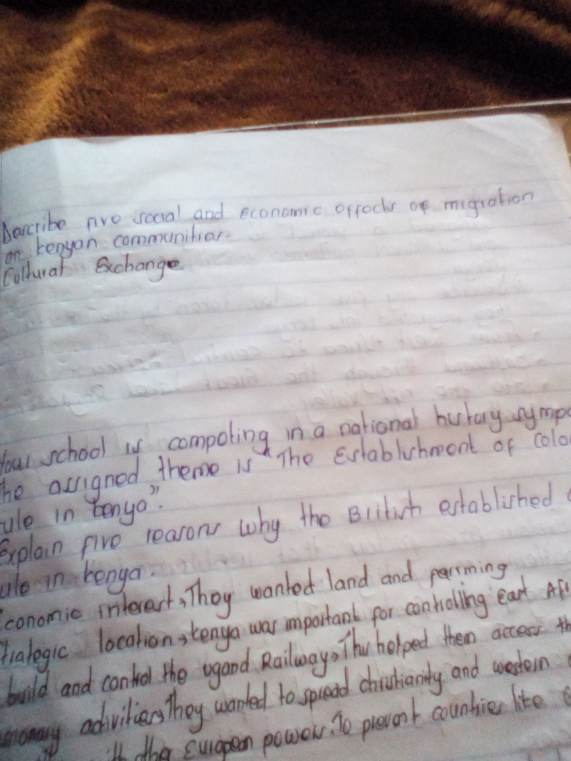 Describe five social and economic effects of migration
on kenyan communities.
Cultural Exchange
Your school is competing in a national history
the assigned theme is "The Establishment of
rule in kenya".
Explain five reasons why the British established
rule in kenya.
Economic interest, They wanted land and farming
strategic location, kenya was important for controlling East
build and control the ugand Railway, This helped them access
activities They wanted to spread christianity and western
the European powers. To prevent countries like